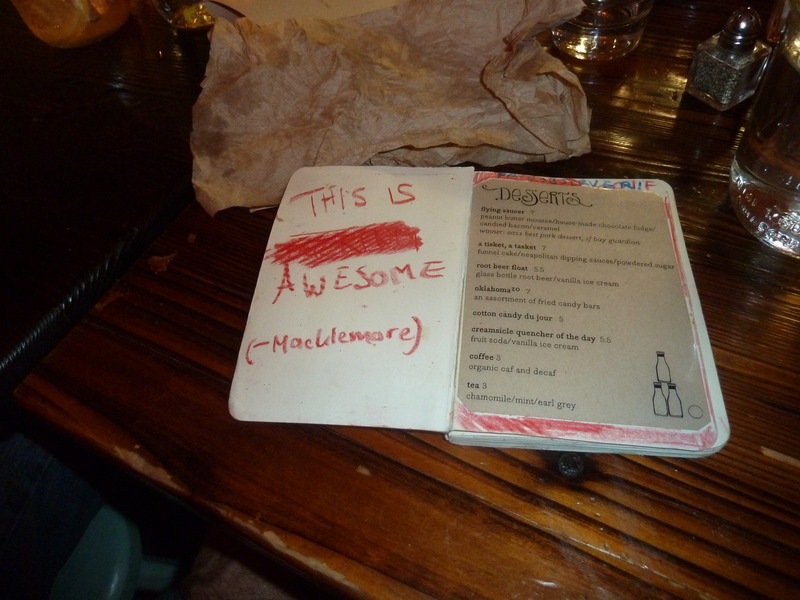 THIS IS
AWESOME
(-Macklemore)
DESSERTS
flying saucer 7
peanut butter mousse/house-made chocolate fudge/
candied bacon/caramel
winner: 2012 best pork dessert, sf bay guardian
a tisket, a tasket 7
funnel cake/neapolitan dipping sauces/powdered sugar
root beer float 5.5
glass bottle root beer/vanilla ice cream
oklahoma 7
an assortment of fried candy bars
cotton candy du jour 5
creamsicle quencher of the day 5.5
fruit soda/vanilla ice cream
coffee 3
organic caf and decaf
tea 3
chamomile/mint/earl grey